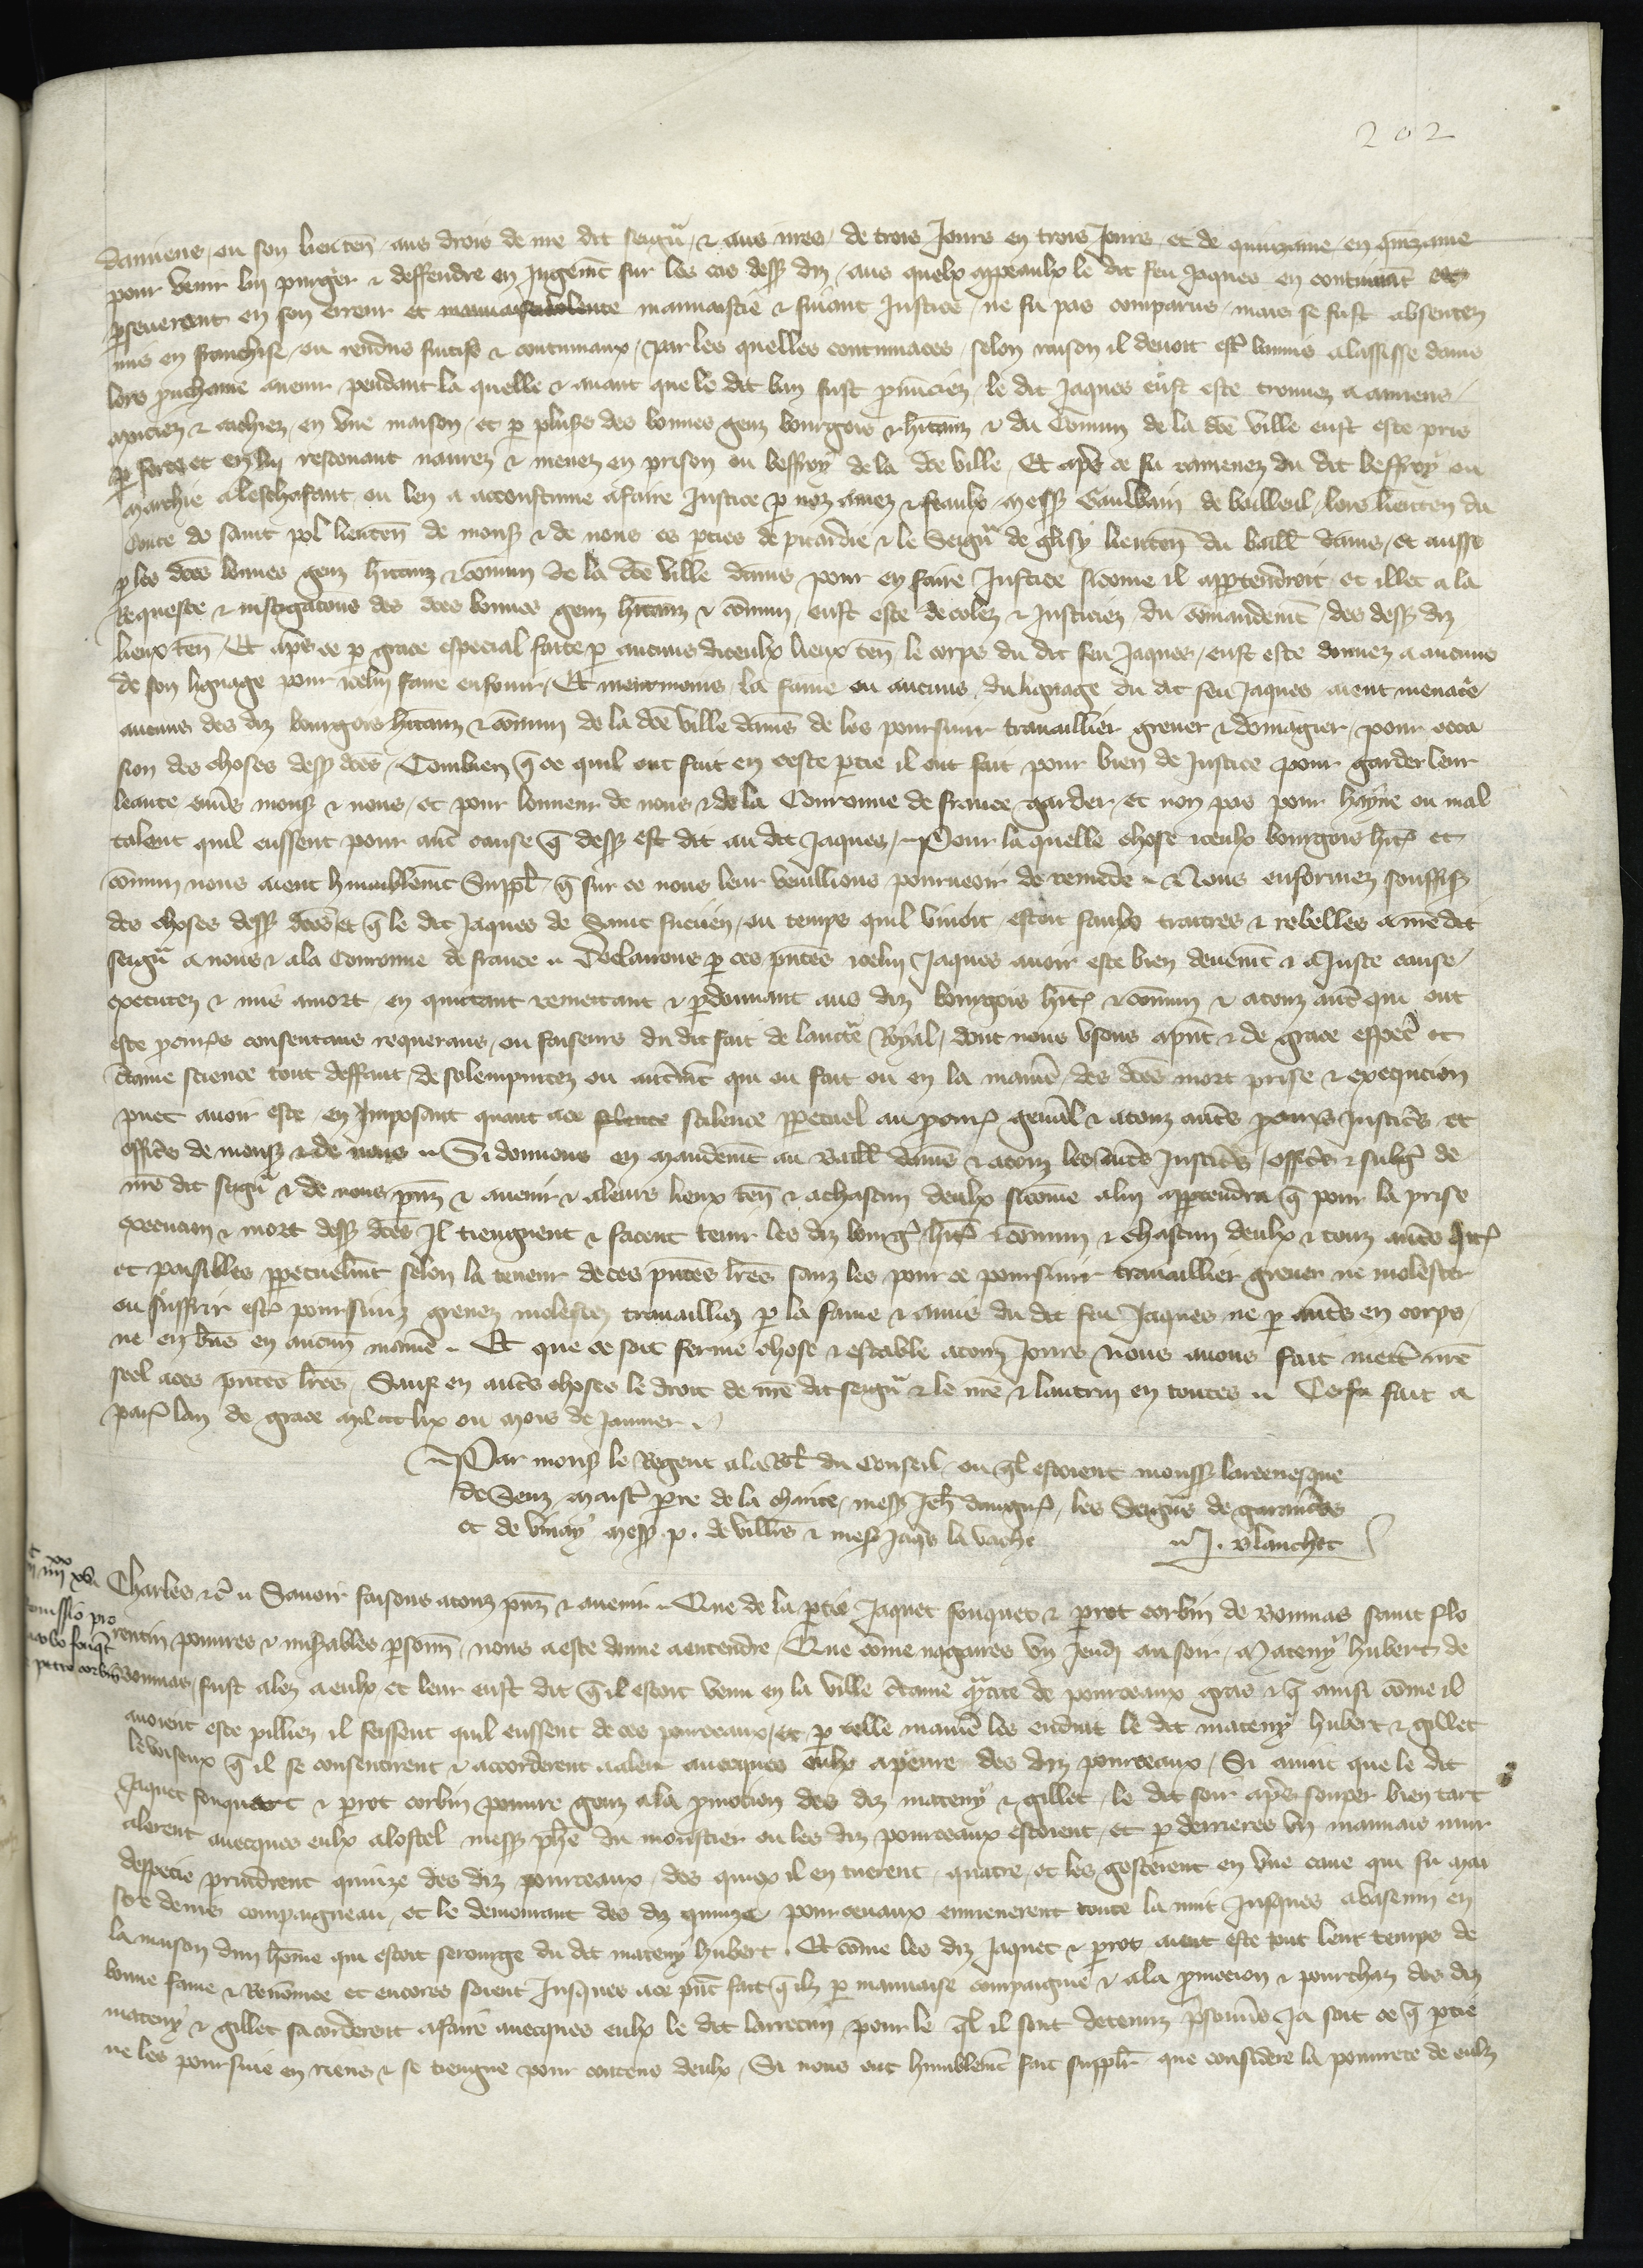 202
damiens ou son lieuten aus drois de nre dit seigur & aus nres de trois Jours en trois Jours et de quinzaine en quinzaine
pour venir luy purger & deffendre en Jugemt sur les cas dess diz / aus quelx appeaulx le dit feu Jaques en continuant et
pseuerant en son erreur et mauuaise volente mauuaistie & fuiant Justice / ne fu pas comparus / mais se fust absentez
mis en franchise / ou rendus fuitifs & contumaux / par les quelles contumaces / selon raison il deuoit estre bannis a lassisse damiens
lors prochaine auenir / pendant la quelle & auant que le dit ban fust pnuncez / le dit Jaques eust este trouuez a amiens /
muciez & cachiez en vne maison / et p plus des bonnes genz bourgois & hitanz & du Comun de la dce ville eust este pris
p force et en lui rescouant naurez & menez en prison ou beffroy de la dce ville / Et apres ce fu ramenez du dit beffroy ou
marchie a leschafaut ou len a acoustume a faire Justice p noz amez & feaulx mess Gauwain de bailleul / lors lieuten du
Conte de saint pol lieuten de mons & de nous es pties de picardie & le Seigur de glisy lieuten du baill damiens / et aussi
p les dces bonnes genz hitanz & comun de la dce ville damiens pour en faire Justice sicome il appartendroit / et illec a la
Requeste & instigations des dces bonnes genz hitanz & comun / eust este decolez & Justiciez du comandemt des dess diz
lieux ten / Et apres ce p grace especial faite p aucuns diceulx lieux ten le corps du dit feu Jaques / eust este donnez a aucuns
de son lignage pour icelui faire enfouir / Et neantmoins la fame ou aucuns du lignage du dit feu Jaques aient menace
aucuns des diz bourgois hitanz & comun de la dce ville damiens de les poursuir trauaillier greuer & domagier / pour occa
sion des choses dess dces / Combien q ce quil ont fait en ceste ptie il ont fait pour bien de Justice pour garder leur
leaute enuers mons & nous / et pour lonneur de nous & de la Couronne de france garder / et non pas pour hayne ou mal
talent quil eussent pour autre cause q dess est dit au dit Jaques / Pour la quelle chose iceulx bourgois hit et
comun nous aient humblemt Suppl q sur ce nous leur veuillions pourueoir de remede / Nous enformez souffis
des choses dess dces et q le dit Jaques de Saint fucien / ou temps quil viuoit estoit faulx traitres & rebelles a nre dit
seigur a nous & a la Couronne de france / Declairons p ces pntes icelui Jaques auoir este bien deuemt & a Juste cause /
executez & mis a mort / en quittant remettant & pdonnant aus diz bourgois hit & comun & a touz autres qui ont
este prouurs consentans requerans / ou faiseurs du dit fait de lauctte Royal / dont nous vsons a pnt & de grace especl et
ctaine science tout deffaut de solempnitez ou autremt qui ou fait ou en la manie des dces mort prise & execucion
puet auoir este / en Imposant quant a ce silence ppetuel au procur genal & a touz autres procurs Justicrs et
officrs de mons & de nous / Si donnons en mandemt au Baill damiens & a touz les autres Justicrs / officrs & subg de
nre dit seigur & de nous pnz & auenir & a leurs lieux ten & a chascun deulx sicome a lui appartendra q pour la prise
execucion & mort dess dces Il tiengnent & facent tenir les diz bourg hit & comun & chascun deulx & touz autres quit
et paisibles ppetuelmt selon la teneur de ces pntes lres sanz les pour ce poursuir trauaillier greuer ne molester
ou suffrir estre poursuiz greuez molestez trauailliez p la fame & amis du dit feu Jaques ne p autres en corps /
ne en biens en aucune manie / Et que ce soit ferme chose & estable a touz Jours nous auons fait mettre nre
seel a ces pntes lres / Sauf en autres choses le droit de nre dit seigur & le nre & lautrui en toutes / Ce fu fait a
paris lan de grace mil ccc lix ou mois de Januier
Par mons le Regent a la Rel du Conseil / ou ql estoient monss larceuesque
de Senz maistre pre de la charite / mess Jeh dangur / les Seigurs de garancieres
et de vinay mess p. de villirs & mess Jaqs la vache
J. Blanchet
c xx
iiii xvi
Remissio pro
Jacobo fouqt
& petro corbin
Charles &c Sauoir faisons a touz pnz & auenir / Que de la ptie Jaquet fouquet & prot corbin de Bonnas saint flo
rentin poures & misables psonnes / nous a este donne a entendre / Que come nagaires vn Jeudi au soir / Mateny hubert de
bonnas / fust alez a eulx et leur eust dit q il estoit venu en la ville ctaine qtite de pourceaux gras & q ainsi come il
auoient este pilliez il feissent quil eussent de ces pourceaux / et p telle manie les enduit le dit mateny hubert & gillet
le boiseux q il se consentirent & accorderent a aler auecques eulx a penre des diz pourceaux / Si auint que le dit
Jaquet fouquet & prot corbin poure genz a la pmocion des diz mateny & gillet / le dit soir apres souper bien tart
alerent auecques eulx a lostel mess phe du moustier ou les diz pourceaux estoient / et p derrieres vn mauuais mur
despecie prindrent quinze des diz pourceaux / des quiex il en tuerent quatre / et les gesterent en vne caue qui fu mai
stre denis compaigneau / et le demourant des diz quinze pourceaux enmenerent toute la nuit Jusques a baserin en
la maison dun home qui estoit serourge du dit mateny hubert / Et come les diz Jaquet & prot aient este tout leur temps de
bonne fame & Renomee et encores soient Jusques a ce pnt fait q ilz p mauuaise compaignie & a la pmocion & pourchaz des diz
mateny & gillet sacorderent a faire auecques eulx le dit larrecin / pour le ql il sont detenuz prisonnrs Ja soit ce q ptie
ne les poursuie en riens & se tiengne pour contens deulx / Si nous ont humblemt fait supplr que considere la pourete de eulz